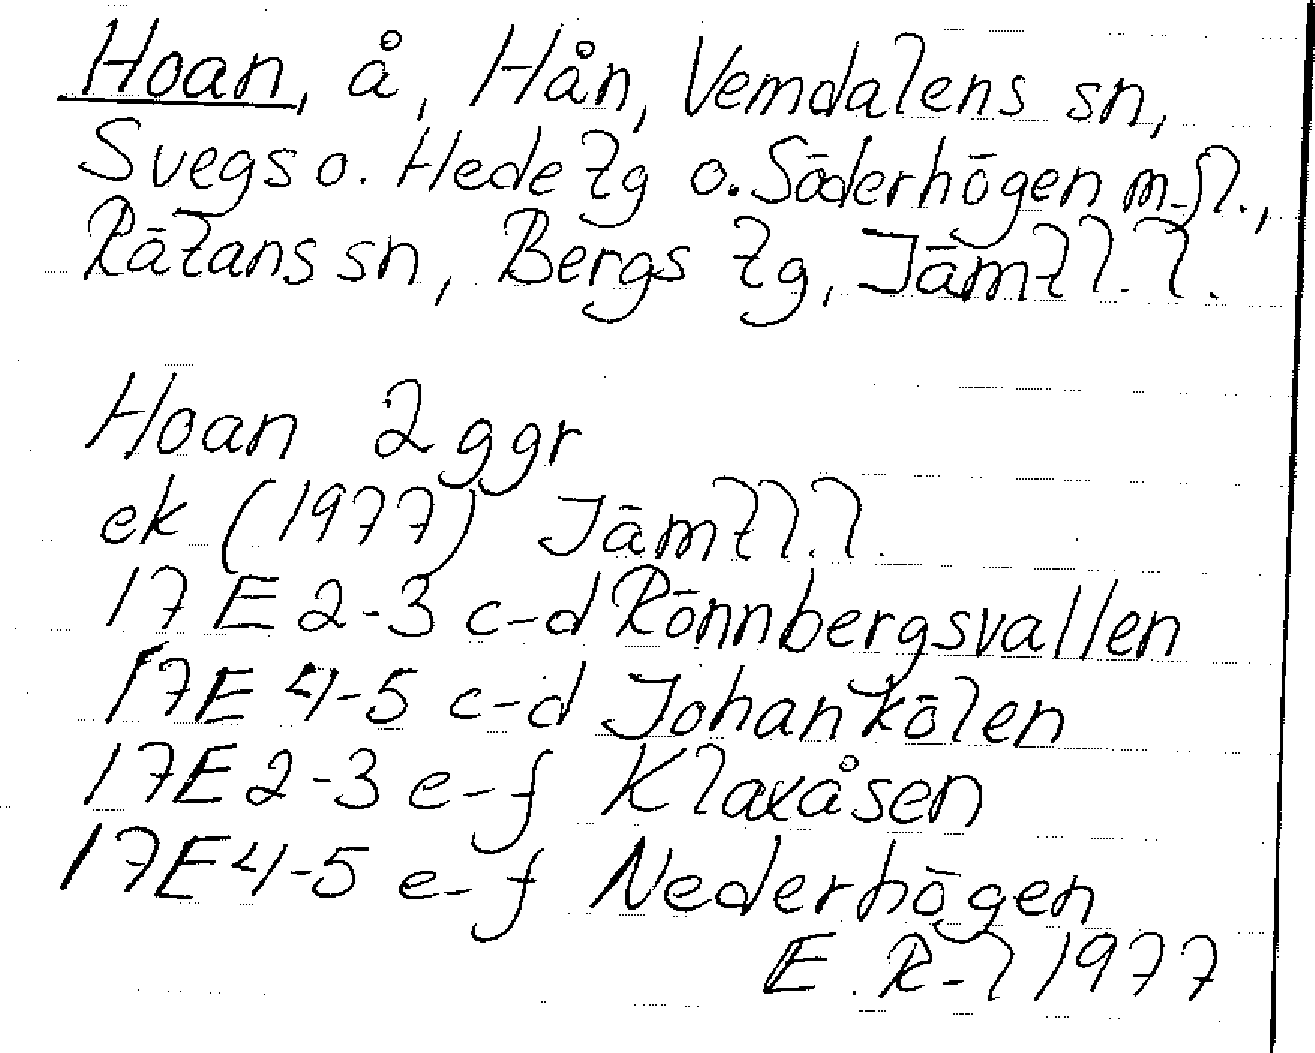 Hoan, å, Hån, Vemdalens sn,
Svegs o. Hede tg o. Söderhögen m.fl.,
Rätans sn, Bergs tg, Jämtl. l.
Hoan 2 ggr
ek (1977) Jämtl. l.
17 E 2-3 c-d Rönnbergsvallen
17E 4-5 c-d Johankölen
17E 2-3 e-f Klaxåsen
17E 4-5 e-f Nederhögen
E. R-l 1977